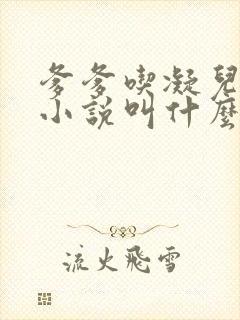 爹爹喫凝兒
小説叫什麼
流火飛雪